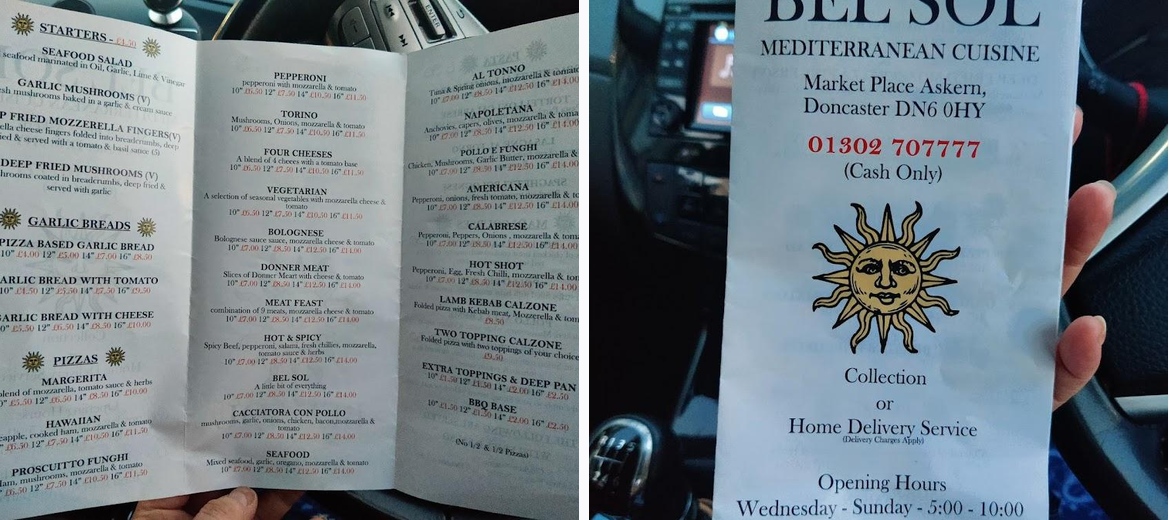 STARTERS - £4.50
SEAFOOD SALAD
seafood marinated in Oil, Garlic, Lime & Vinegar
GARLIC MUSHROOMS (V)
mushrooms baked in a garlic & cream sauce
FRIED MOZZERELLA FINGERS(V)
cheese fingers folded into breadcrumbs, deep
fried & served with a tomato & basil sauce (5)
DEEP FRIED MUSHROOMS (V)
coated in breadcrumbs, deep fried &
served with garlic
GARLIC BREADS
PIZZA BASED GARLIC BREAD
10" £4.00 12" £5.00 14" £7.00 16" £8.50
BREAD WITH TOMATO
£4.50 12" £5.50 14" £7.50 16" £9.50
GARLIC BREAD WITH CHEESE
£5.50 12" £6.50 14" £8.50 16" £10.00
PIZZAS
MARGERITA
blend of mozzarella, tomato sauce & herbs
£5.50 12" £6.50 14" £9.50 16" £10.00
HAWAIIAN
cooked ham, mozzarella & tomato
£6.50 12" £7.50 14" £10.50 16" £11.50
PROSCUITTO FUNGHI
mushrooms, mozzarella & tomato
£6.50 12" £7.50 14" £10.50 16" £11.50
PEPPERONI
pepperoni with mozzarella & tomato
10" £6.50 12" £7.50 14" £10.50 16" £11.50
TORINO
Mushrooms, Onions, mozzarella & tomato
10" £6.50 12" £7.50 14" £10.50 16" £11.50
FOUR CHEESES
A blend of 4 cheees with a tomato base
10" £6.50 12" £7.50 14" £10.50 16" £11.50
VEGETARIAN
A selection of seasonal vegetables with mozzarella cheese &
tomato
10" £6.50 12" £7.50 14" £10.50 16" £11.50
BOLOGNESE
Bolognese sauce, mozzarella cheese & tomato
10" £7.00 12" £8.50 14" £12.50 16" £14.00
DONNER MEAT
Slices of Donner Meart with cheese & tomato
10" £7.00 12" £8.50 14" £12.50 16" £14.00
MEAT FEAST
combination of 9 meats, mozzarella cheese & tomato
10" £7.00 12" £8.50 14" £12.50 16" £14.00
HOT & SPICY
Spicy Beef, pepperoni, salami, fresh chillies, mozzarella,
tomato sauce & herbs
10" £7.00 12" £8.50 14" £12.50 16" £14.00
BEL SOL
A little bit of everything
10" £7.00 12" £8.50 14" £12.50 16" £14.00
CACCIATORA CON POLLO
mushrooms, garlic, onions, chicken, bacon,mozzarella &
tomato
10" £7.00 12" £8.50 14" £12.50 16" £14.00
SEAFOOD
Mixed seafood, garlic, oregano, mozzarella & tomato
10" £7.00 12" £8.50 14" £12.50 16" £14.00
AL TONNO
Tuna & Spring onions, mozzarella & tomato
10" £7.00 12" £8.50 14" £12.50 16" £14.00
NAPOLETANA
Anchovies, capers, olives, mozzarella & tomato
10" £7.00 12" £8.50 14" £12.50 16" £14.00
POLLO E FUNGHI
Chicken, Mushrooms, Garlic Butter, mozzarella &
10" £7.00 12" £8.50 14" £12.50 16" £14.00
AMERICANA
Pepperoni, onions, fresh tomato, mozzarella &
10" £7.00 12" £8.50 14" £12.50 16" £14.00
CALABRESE
Pepperoni, Peppers, Onions , mozzarella & tomato
10" £7.00 12" £8.50 14" £12.50 16" £14.00
HOT SHOT
Pepperoni, Egg, Fresh Chilli, mozzarella &
10" £7.00 12" £8.50 14" £12.50 16" £14.00
LAMB KEBAB CALZONE
Folded pizza with Kebab meat, Mozzerella &
£8.50
TWO TOPPING CALZONE
Folded pizza with two toppings of your choice
£9.50
EXTRA TOPPINGS & DEEP PAN
10" £1.50 12" £1.50 14" £2.00 16" £2.50
BBQ BASE
10" £1.50 12" £1.50 14" £2.00 16" £2.50
(No 1/2 & 1/2 Pizzas)
ENTER
BEL SOL
MEDITERRANEAN CUISINE
Market Place Askern,
Doncaster DN6 0HY
01302 707777
(Cash Only)
Collection
or
Home Delivery Service
(Delivery Charges Apply)
Opening Hours
Wednesday - Sunday - 5:00 - 10:00